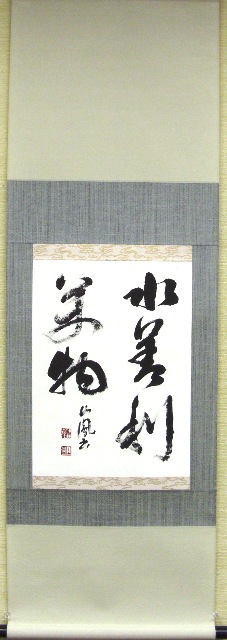 水善利
万物